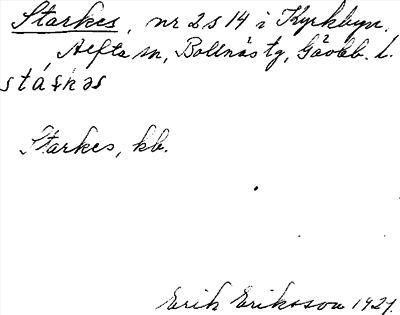 Starkes, nr 2 s 14 i Kyrkbyn,
Alfta sn, Bollnäs tg, Gävleb. l.
stáṣkəs
Starkes, kb.
Erik Eriksson 1927.